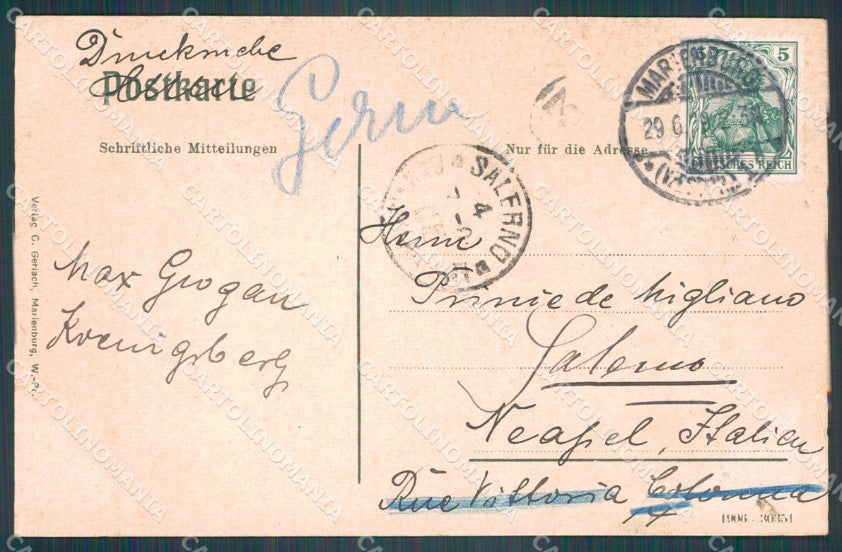 Drucksache
Postkarte
Schriftliche Mitteilungen
Nur für die Adresse
MARIENBURG
29 6
(WESTPR.)
5
DEUTSCHES REICH
SALERNO
4
Max Grogan
Koenigsberg
Herrn
Principe de Migliano
Salerno
Neapel, Italien
Rue Vittoria Colonna
Verlag C. Gerlach, Marienburg, W.-Pr.
1906 - 30351
CARTOLINOMANIA